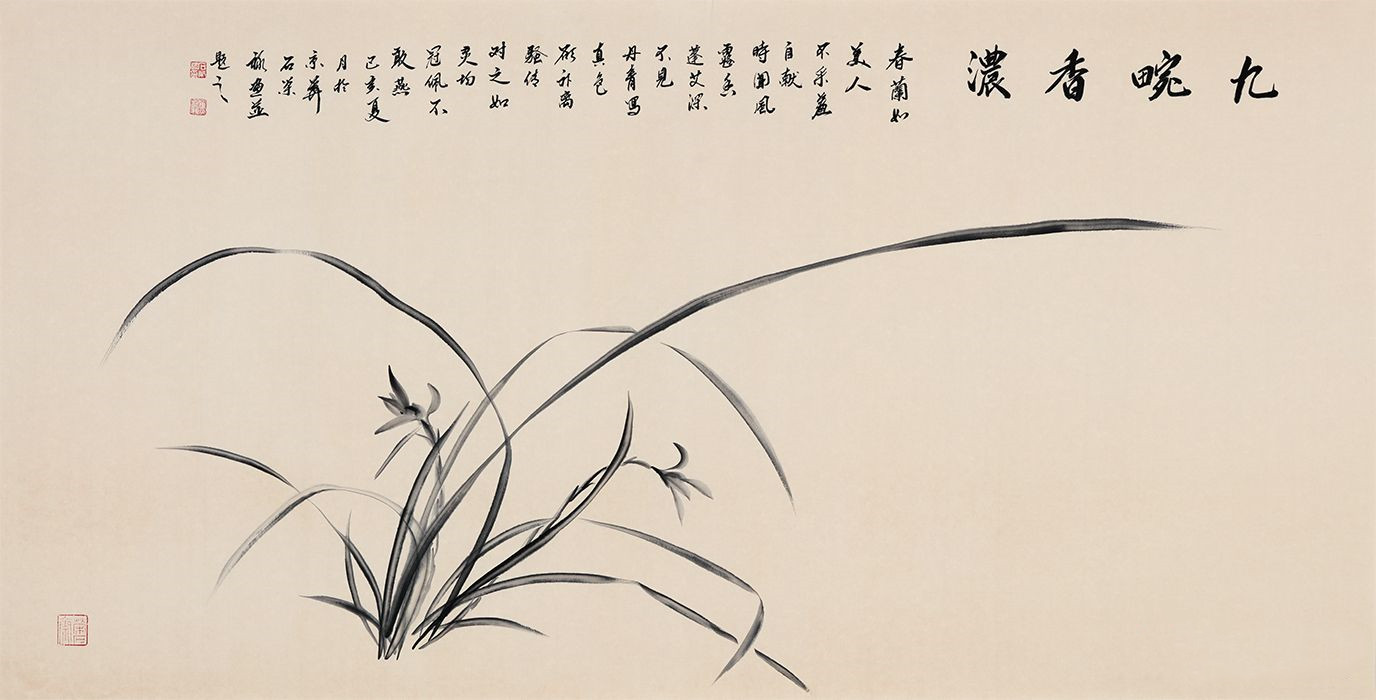 九畹香濃
春蘭如
美人
不采羞
自献
時聞風
露香
蓬艾深
不見
丹青寫
真色
欲补离
騷传
对之如
灵均
冠佩不
敢燕
己亥夏
月於
京華
石荣
禄画並
题之